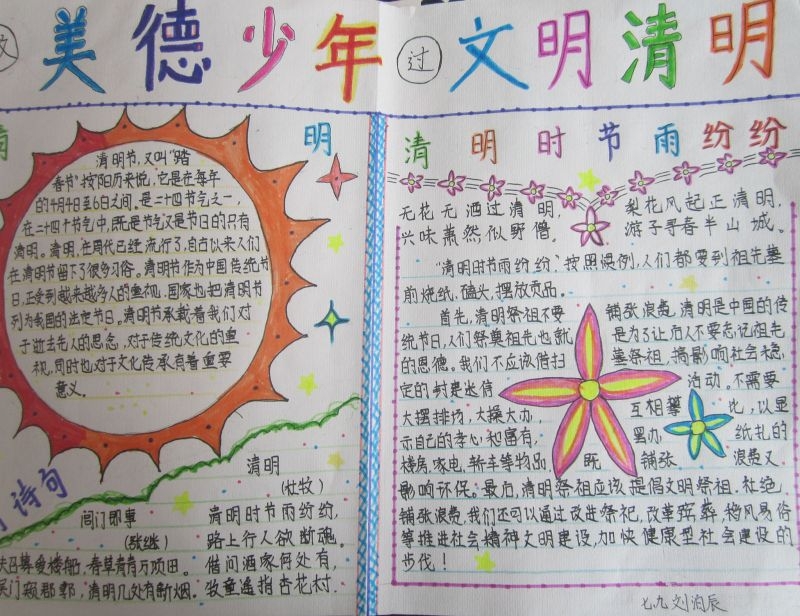 美德少年 过 文明清明
明
清明节,又叫“踏
春节”按阳历来说,它是在每年
的4月4日至6日之间。是二十四节气之一,
在二十四个节气中,既是节气又是节日的只有
清明。清明,在周代已经流行了,自古以来人们
在清明节留下了很多习俗。清明节作为中国传统节
日,正受到越来越多人的重视。国家也把清明节
列为我国的法定节日。清明节承载着我们对
于逝去先人的思念,对于传统文化的重
视,同时也对于文化传承有着重要
意义。
诗句
闾门即事
(张继)
召募爱楼船,春草青青万项田。
门窥郡郭,清明几处有新烟。
清明
(杜牧)
清明时节雨纷纷,
路上行人欲断魂。
借问酒家何处有,
牧童遥指杏花村.
清明时节雨纷纷
无花无酒过清明,
兴味萧然似野僧。
梨花风起正清明,
游子寻春半出城。
“清明时节雨纷纷”按照惯例,人们都要到祖先墓
前烧纸,磕头,摆放贡品。
首先,清明祭祖不要 铺张浪费,清明是中国的传
统节日,人们祭奠祖先也就 是为了让后人不要忘记祖先
的恩德。我们不应该借扫 墓祭祖,搞影响社会稳
定的封建迷信 活动,不需要
大摆排场,大操大办, 互相攀 比,以显
示自己的孝心和富有, 置办 纸扎的
楼房,家电,轿车等物品, 既 铺张 浪费又
影响环保。最后,清明祭祖应该提倡文明祭祖,杜绝
铺张浪费,我们还可以通过改进祭祀,改革殡葬,移风易俗
等推进社会精神文明建设,加快健康型社会建设的
步伐!
七九 刘泊辰